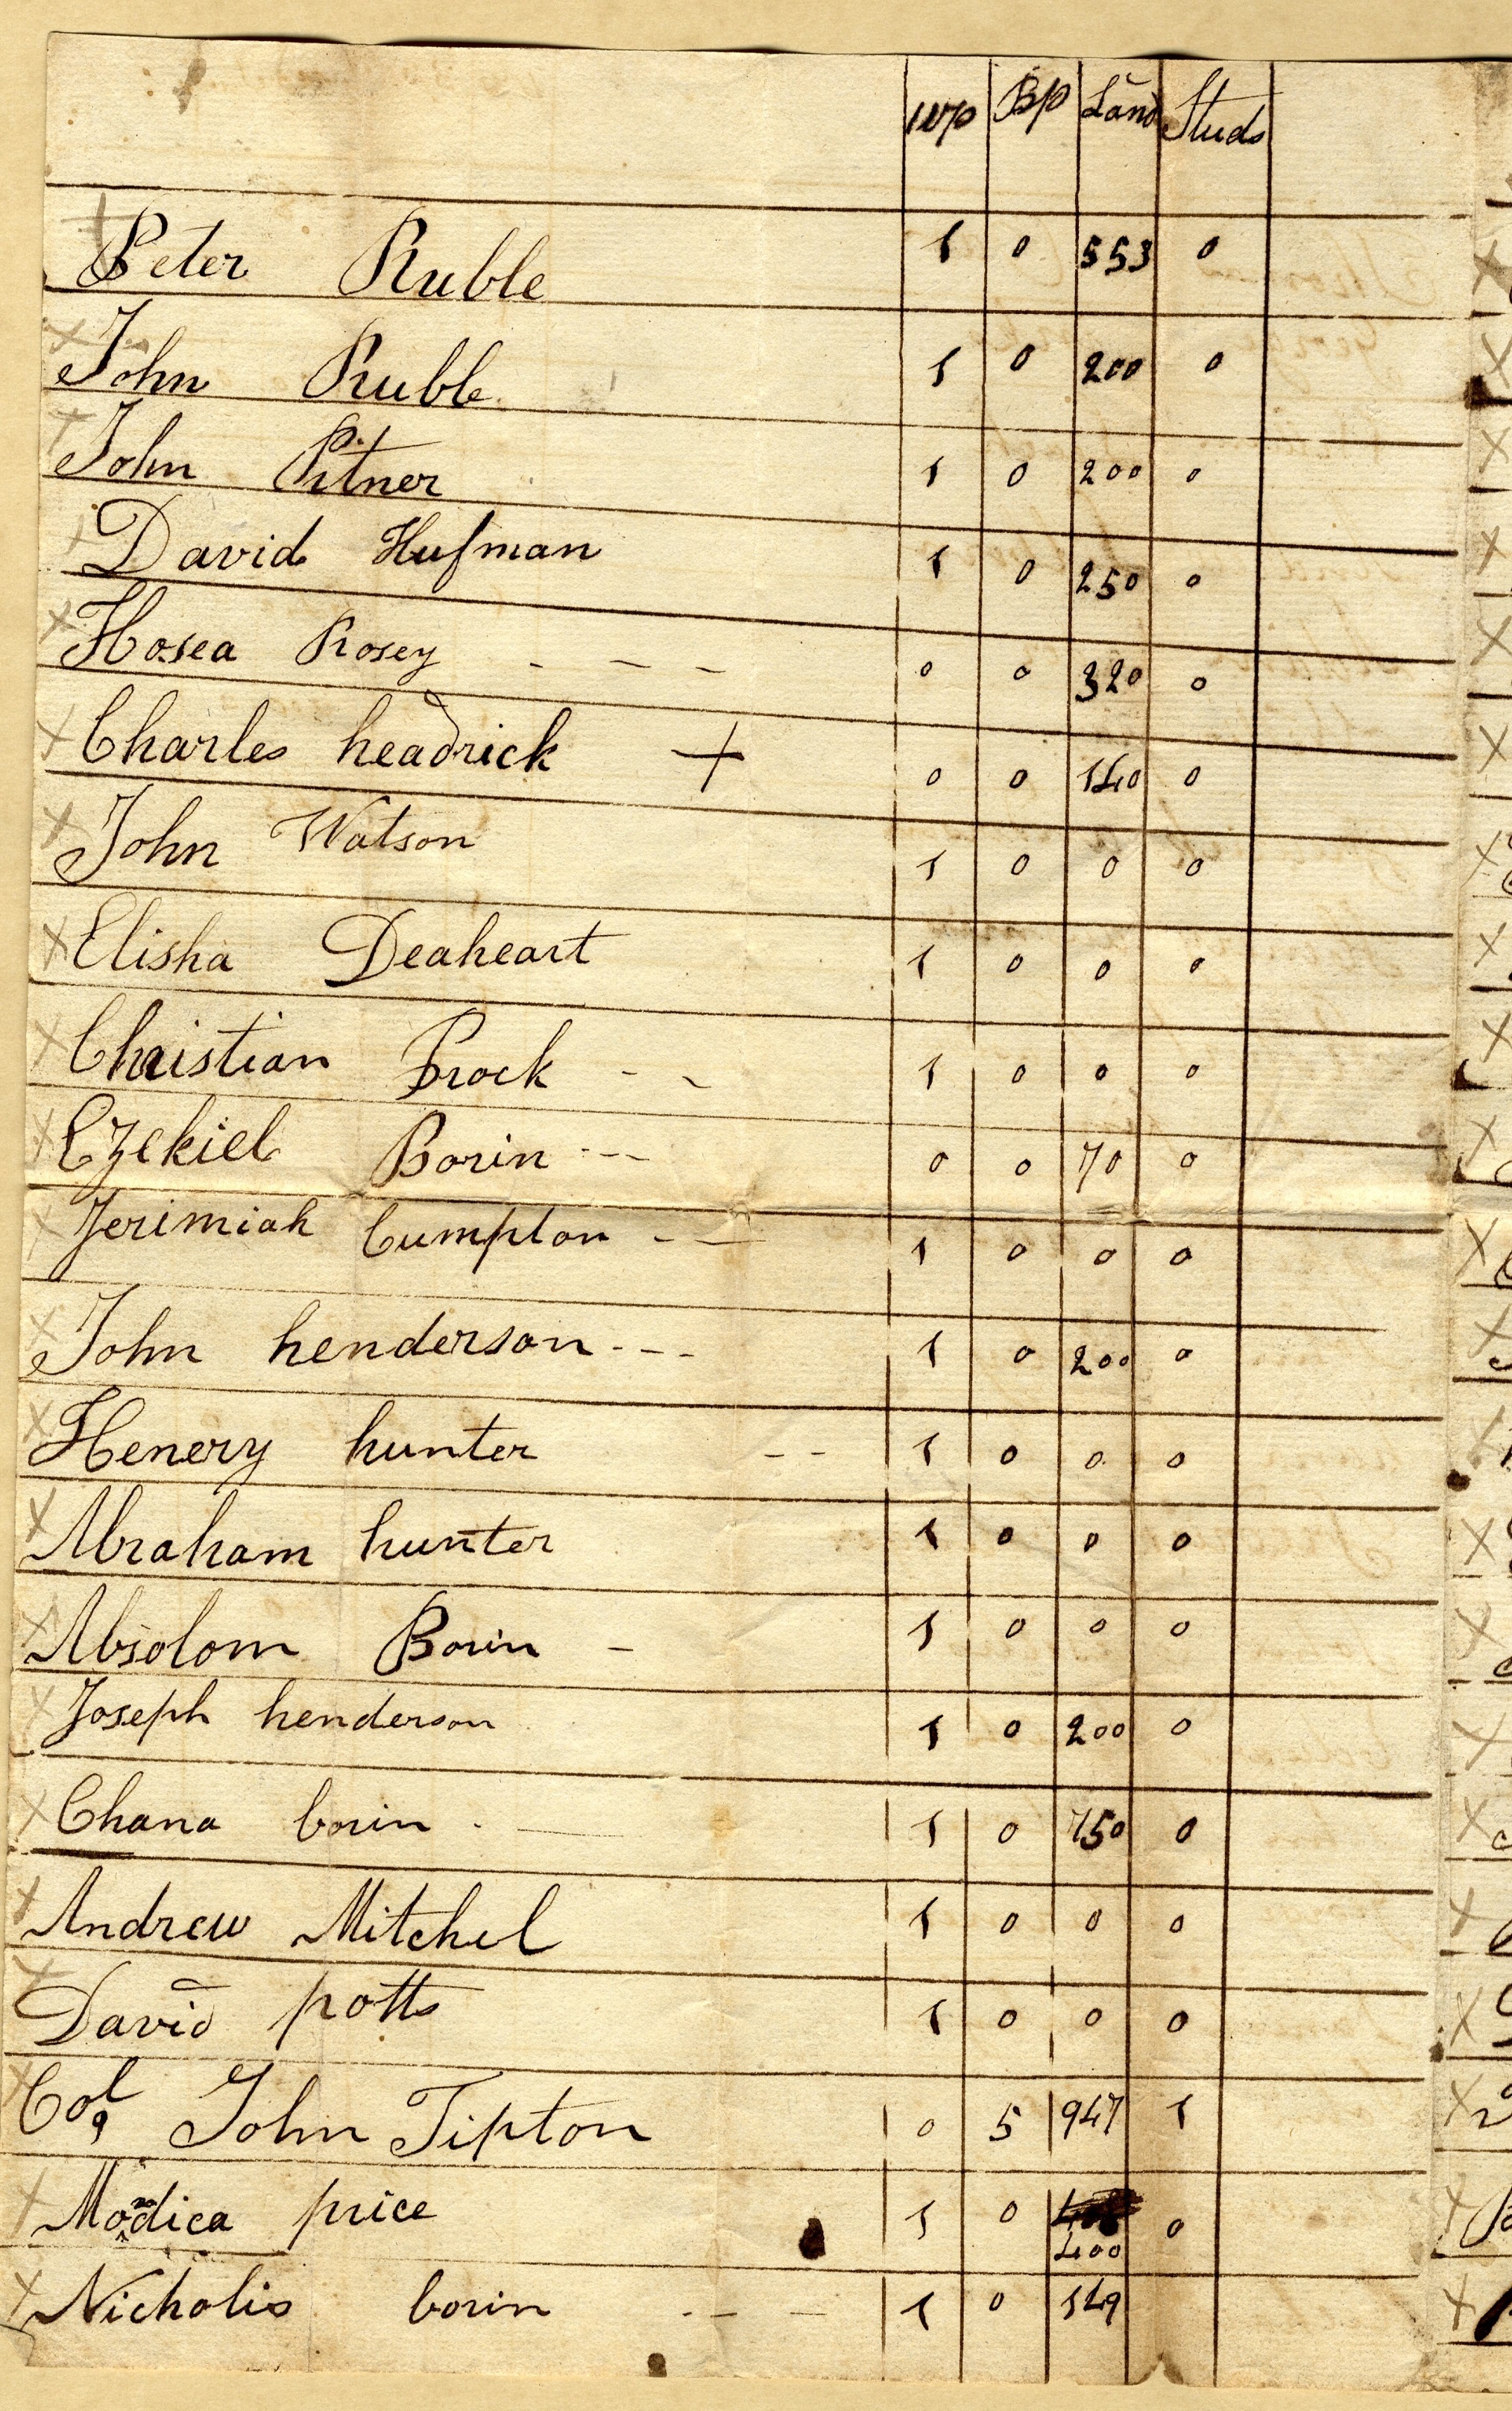 wp Bp Land Studs
Peter Ruble 1 0 553 0
John Ruble 1 0 200 0
John Pitner 1 0 200 0
David Hufman 1 0 250 0
Hosea Rosey - - - 0 0 320 0
Charles headrick + 0 0 140 0
John Watson 1 0 0 0
Elisha Deaheart 1 0 0 0
Christian Brock - - 1 0 0 0
Ezekiel Borin - - - 0 0 70 0
Jerimiah Cumpton - - 1 0 0 0
John henderson - - - 1 0 200 0
Henery hunter - - 1 0 0 0
Abraham hunter 1 0 0 0
Absolom Borin - 1 0 0 0
Joseph henderson 1 0 200 0
Chana borin - 1 0 750 0
Andrew Mitchel 1 0 0 0
David potts 1 0 0 0
Col John Tipton 0 5 947 1
Modica price 1 0 400 0
Nicholis borin - - - 1 0 149